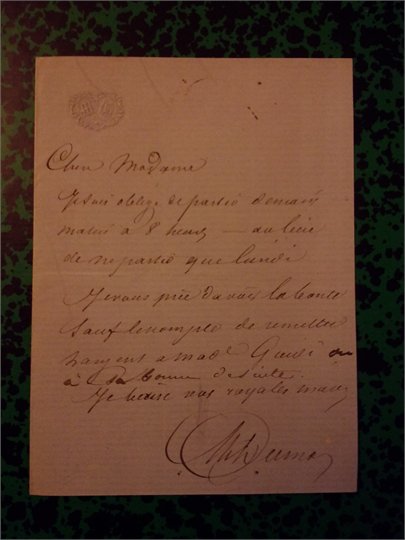 Chere Madame
Je suis obligé de partir demain
matin à 8 heures — au lieu
de ne partir que lundi
Je vous prie d'avoir la bonté
sauf de remettre
l'argent a mad^e ou
à
Je baise vos royales mains